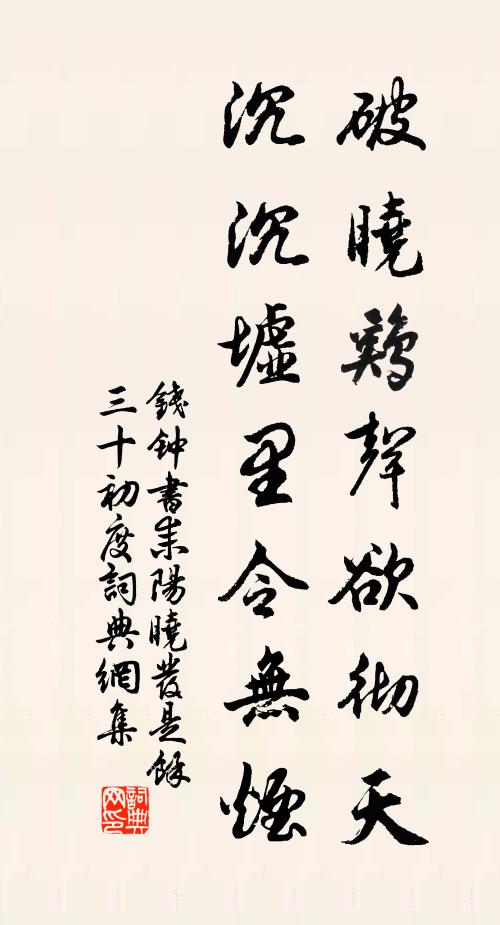 破曉鷄聲欲彻天
沉沉墟里令無煙
錢钟書耒陽曉發是餘
三十初度詞典網集
詞典网印